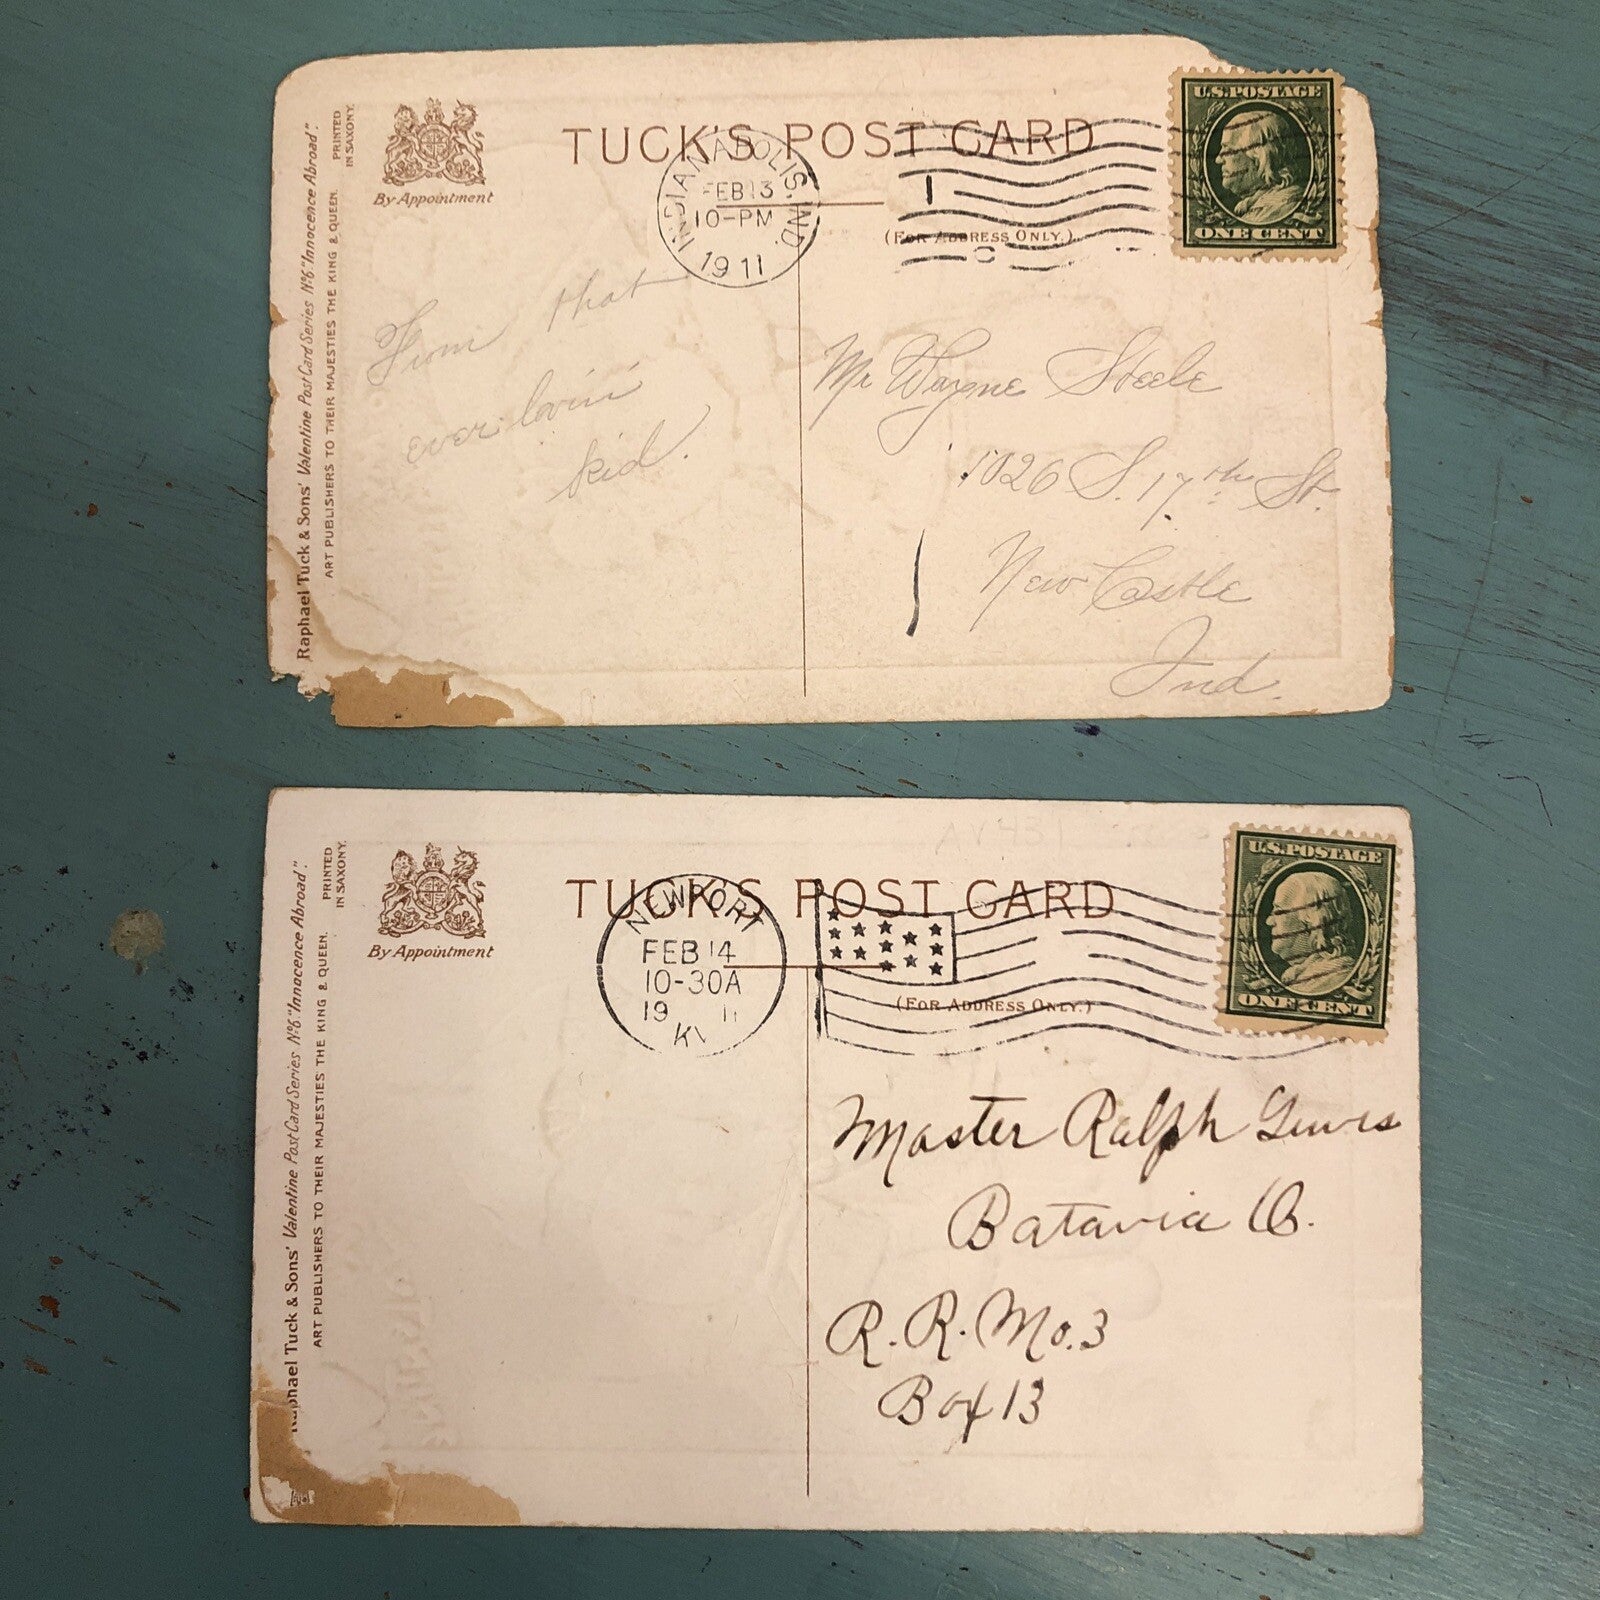 TUCK'S POST CARD
U.S.POSTAGE
ONE CENT
PRINTED
IN SAXONY.
By Appointment
Raphael Tuck & Sons' Valentine Post Card Series Nº6 "Innocence Abroad".
ART PUBLISHERS TO THEIR MAJESTIES THE KING & QUEEN.
INDIANAPOLIS, IND.
FEB 13
10-PM
1911
1
(FOR ADDRESS ONLY.)
From that
ever lovin'
kid.
Mr Wayne Steele
1026 S. 17th St.
New Castle
Ind.
TUCK'S POST CARD
U.S.POSTAGE
ONE CENT
PRINTED
IN SAXONY.
By Appointment
Raphael Tuck & Sons' Valentine Post Card Series Nº6 "Innocence Abroad".
ART PUBLISHERS TO THEIR MAJESTIES THE KING & QUEEN.
NEWPORT
FEB 14
10-30A
19 11
KY
(FOR ADDRESS ONLY.)
Master Ralph Lewis
Batavia O.
R.R. No. 3
Box 13